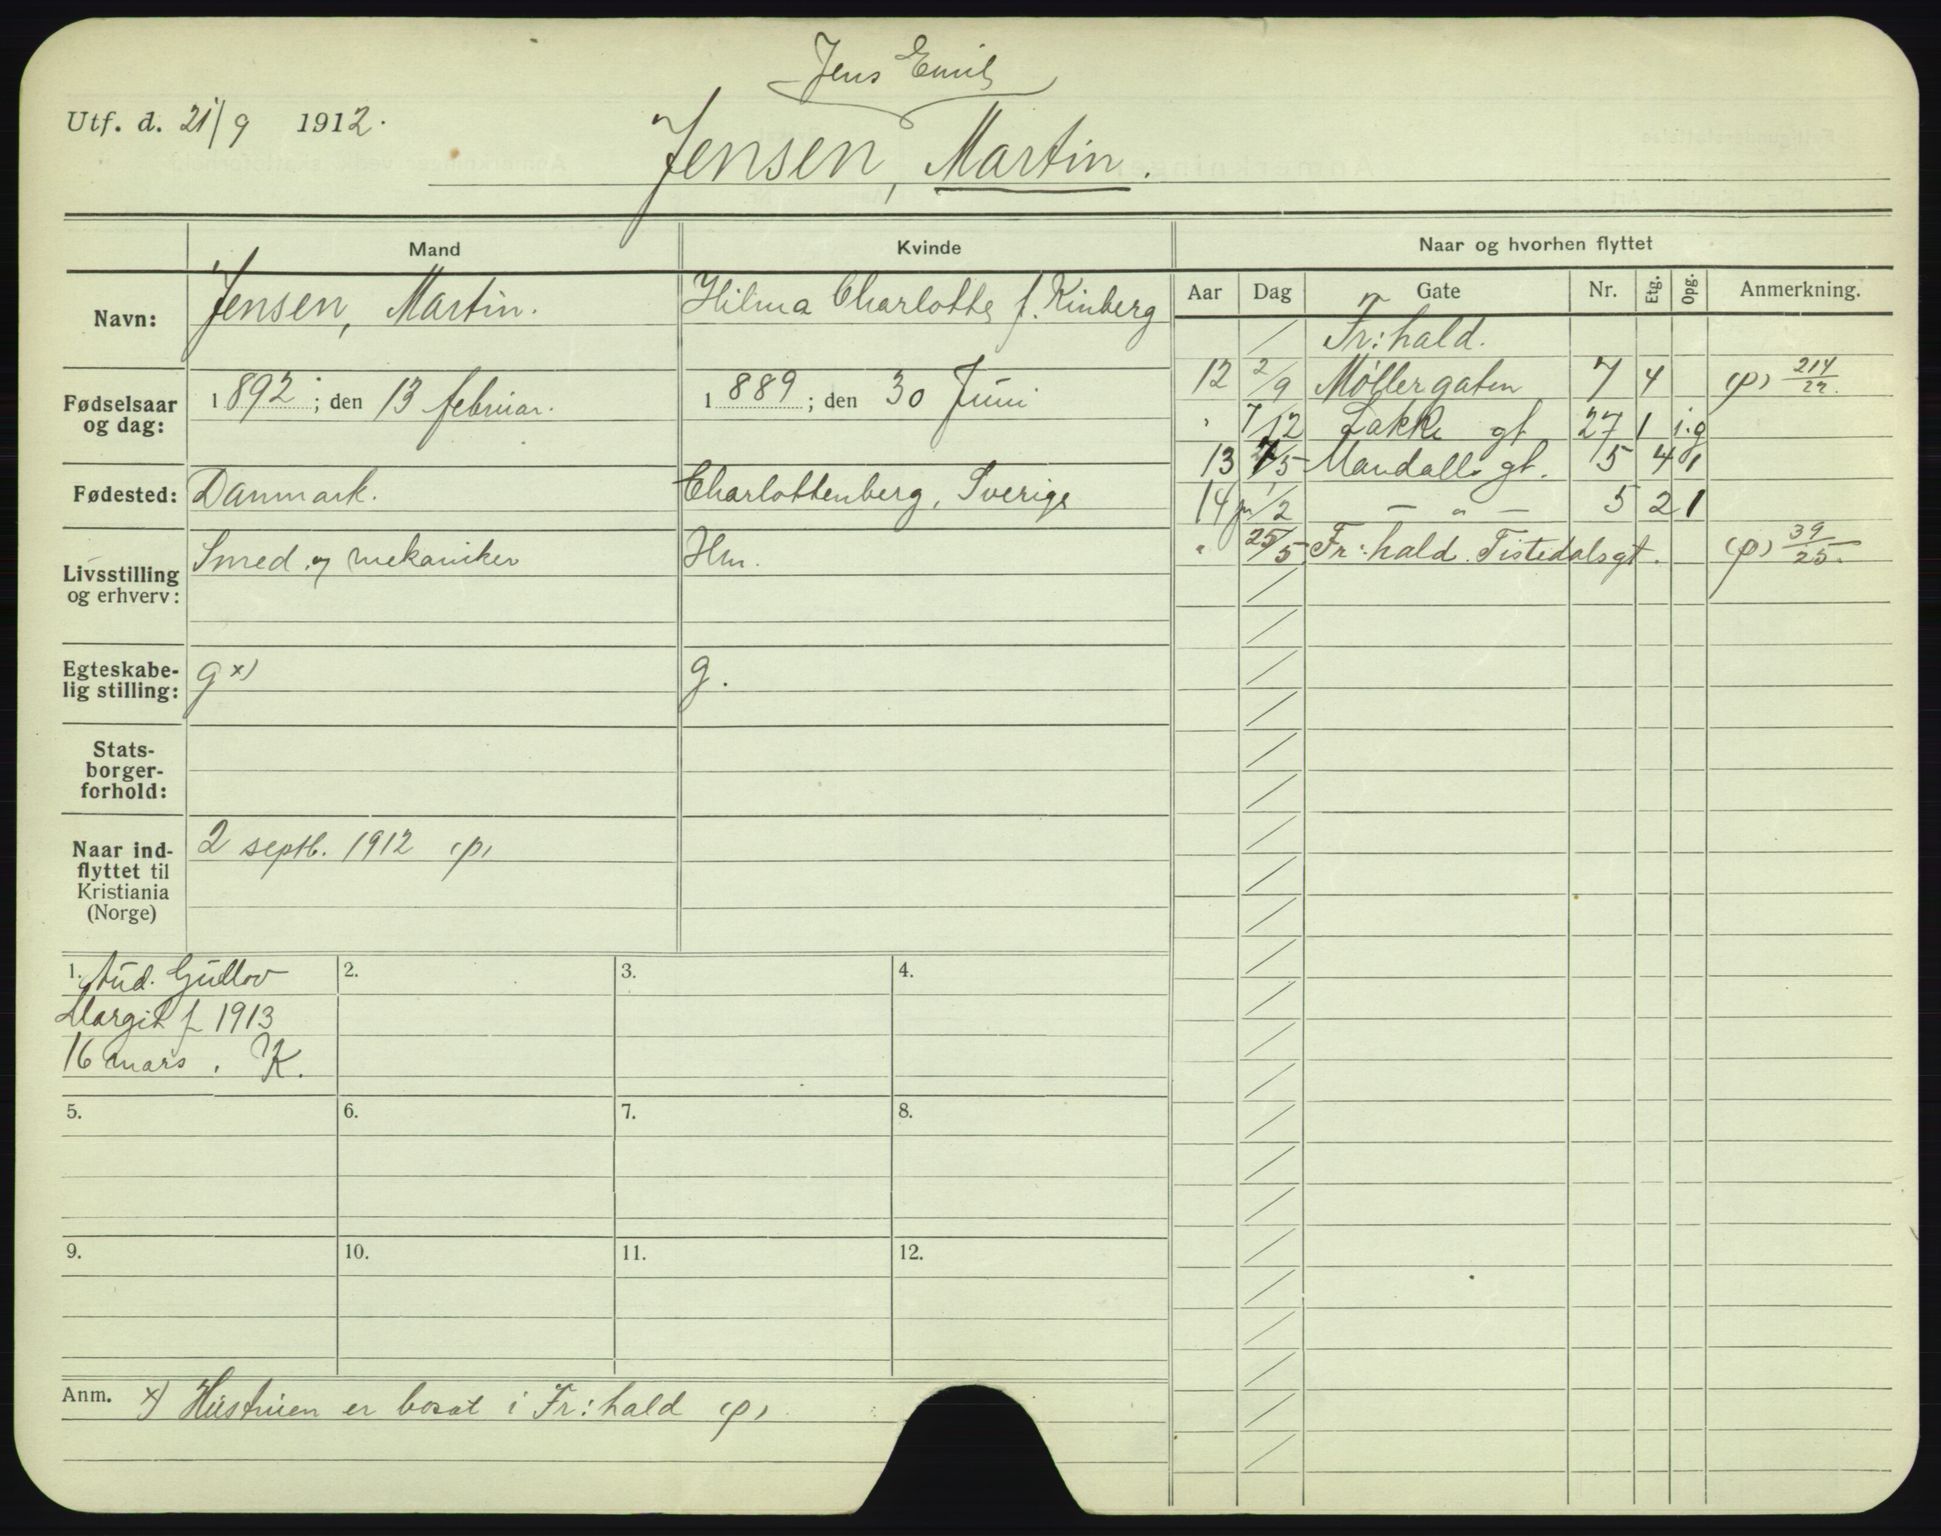 Jens Emil
Utf. d. 21/9 1912.
Jensen, Martin.
Mand
Kvinde
Naar og hvorhen flyttet
Navn:
Jensen, Martin.
Hilma Charlotte f. Kinberg
Aar Dag Gate Nr. Etg. Opg. Anmerkning.
/ Fr:hald.
Fødselsaar
og dag:
1892; den 13 februar.
1889; den 30 Juni
12 2/9 Møllergaten 7 4 (p) 214/22.
" 7/12 Lakke gt 27 1 i.g
13 7/5 Mandalls gt. 5 4 1
Fødested:
Danmark.
Charlottenberg, Sverige
14 /2 — " — 5 2 1
Livsstilling
og erhverv:
Smed og mekaniker
Hm.
" 25/5 Fr:hald. Tistedalsgt. (p) 39/25.
Egteskabe-
lig stilling:
g x)
g.
Stats-
borger-
forhold:
Naar ind-
flyttet til
Kristiania
(Norge)
2 septb. 1912 (p)
1. Aud. Gudlov
Margit f 1913
16 mars. K.
2.
3.
4.
5.
6.
7.
8.
9.
10.
11.
12.
Anm. x) Hustruen er bosat i Fr:hald (p)